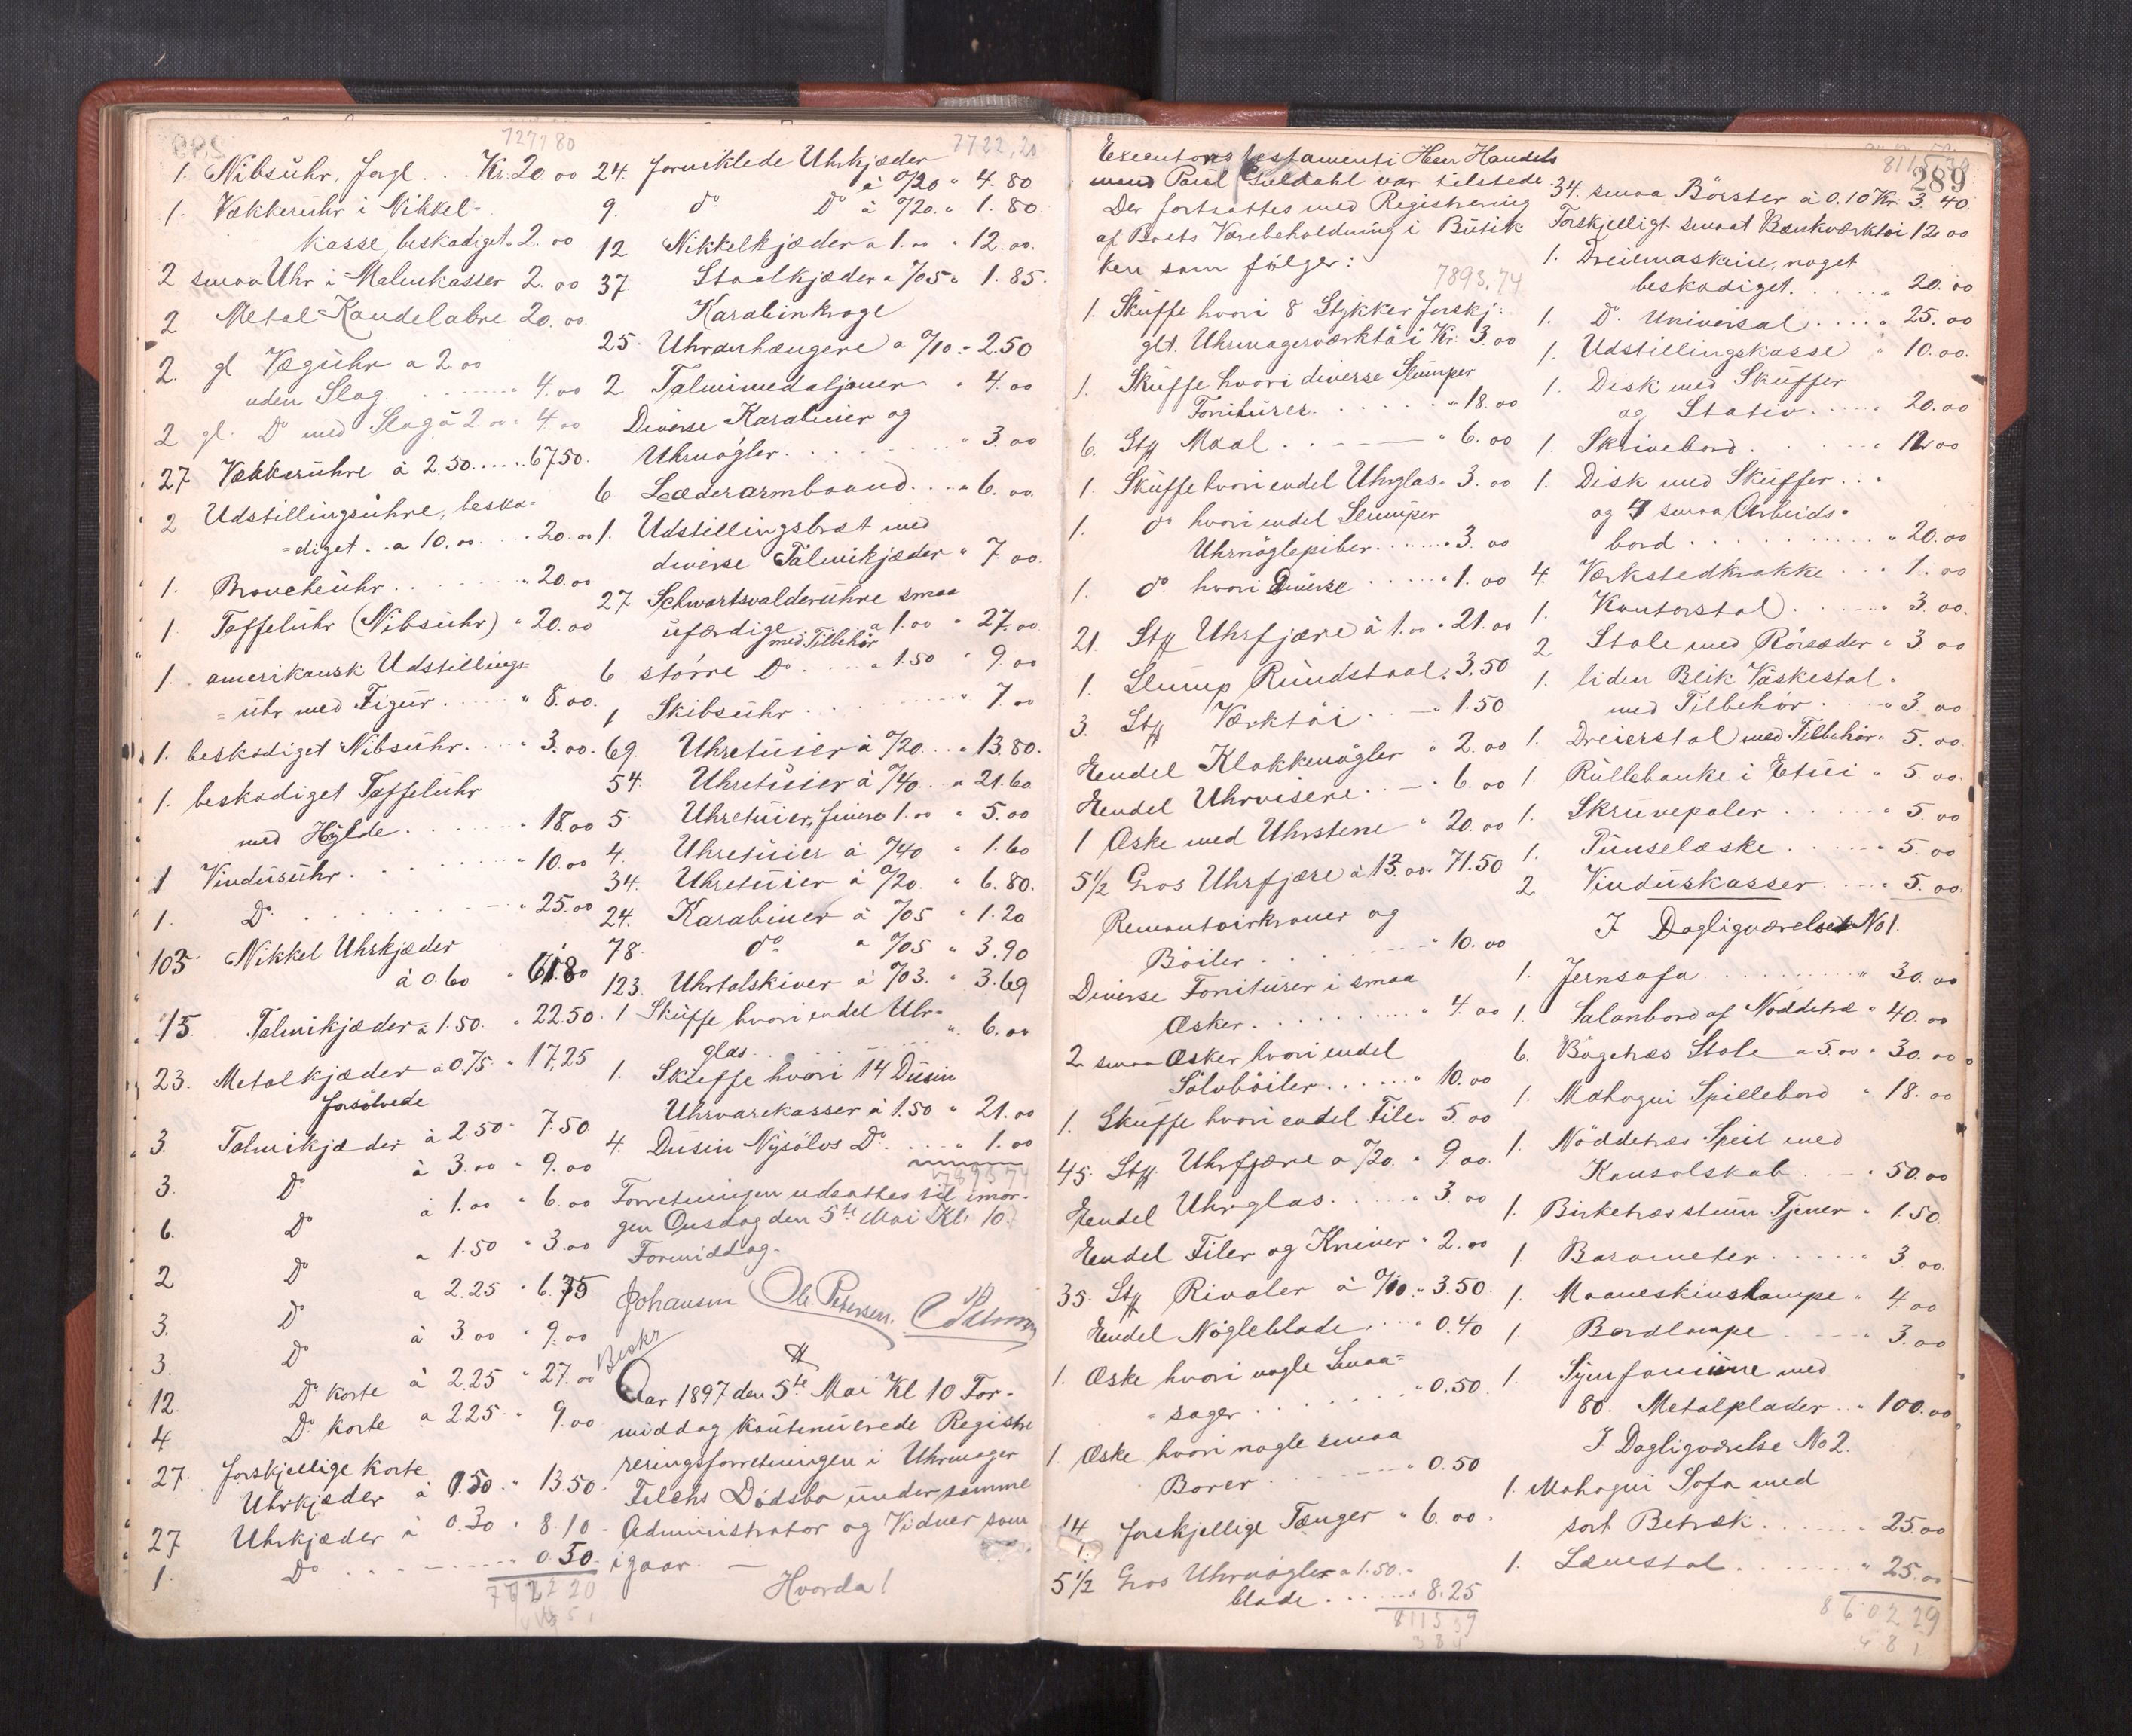 727780
1. Nibsühr, forgl . . Kr. 20.00
1. Vækkerühr i Nikkel-
kasse, beskadiget " 2.00
2 smaa Uhr i Malmkasser 2.00
2 Metal-Kandelabre 20.00
2. gl Vægühr a 2.00
uden Slag . . . . " 4.00
2 gl. Do med Slag à 2.00 " 4.00
27 Vækkerühre à 2.50 . . . . 67.50.
2 Udstillingsühre, beska-
=diget . . a 10.00 . . . " 20.00
1. Broucheühr . . . . " 20.00
1 Taffelühr (Nibsühr) " 20.00
1. amerikansk Udstillings=
=ühr med Figür . . . . " 8.00.
1. beskadiget Nibsühr . . . " 3.00.
1. beskadiget Taffelühr
med Hÿlde . . . . " 18.00
1 Vindüsühr . . . . " 10.00
1. Do . . . . " 25.00
103 Nikkel Uhrkjæder
à 0.60 " 61.80
15. Talmikjæder a 1.50. " 22.50.
23. Metalkjæder a 0.75 " 17,25
forsölvede
3. Talmikjæder à 2.50 " 7.50
3. Do à 3.00 " 9.00
6. Do à 1.00 " 6.00
2 Do a 1.50 " 3.00
3. Do a 2.25 " 6.75
3. Do à 3 00 " 9.00
12. Do korte à 2.25 " 27.00
4 Do korte a 2.25 " 9.00
27. forskjellige korte
Uhrkjæder à 0.50 " 13.50.
27 Uhrkjæder à 0.30 " 8.10
1. Do . . . . 0.50.
7722 20
7722,20
24. forniklede Uhrkjæder
à 0/20 " 4.80
9. do Do à 0/20. " 1.80
12 Nikkelkjæder a 1.00 " 12.00.
37. Staalkjæder a 0/05 " 1.85.
Karabinkroge
25. Uhranhængere a 0/10 . " 2.50
2 Talmimedaljoner " 4.00
Diverse Karabiner og
Uhrnögler . . . . " 3.00
6 Læderarmbaand . . . " 6.00.
1. Udstillingsbræt med
diverse Talmikjæder " 7.00.
27 Schwartsvalderühre smaa
üfærdige a 1.00 " 27.00
med Tilbehör
6 större Do . . . a 1.50 " 9.00
1 Skibsühr . . . . " 7.00
69. Uhretüier à 0/20 . . " 13.80.
54. Uhretüier à 0/40 . . " 21.60
5. Uhretüier, finere 1.00 " 5.00
4. Uhretüier à 0/40 " 1.60
34. Uhretüier à 0/20. " 6.80.
24. Karabiner à 0/05 " 1.20
78. do a 0/05 " 3.90
123. Uhrtalskiver à 0/03. " 3.69
1 Sküffe hvori endel Uhr-
glas . . . . " 6.00
1. Sküffe hvori 14 Düsin
Uhrvarekasser à 1.50 " 21.00
4. Düsin Nÿsölvs Do . . . . " 1.00
7893 74
Forretningen udsattes til imor-
gen Onsdag den 5te Mai Kl. 10
Formiddag.
Johansen Ole Petersen.
Beskr
Aar 1897 den 5te Mai Kl 10 For-
middag kontinuerede Registre
reringsforretningen i Uhrmager
Falchs Dödsbo ünder samme
Administrator og Vidner som
igaar. —
Hvorda!
Executores testamenti Herr Handels
mand Paul Guldahl var tilstede.
Der fortsattes med Registrering
af Boets Varebeholdning i Bütik
ken som fölger:
7893,74
1. Sküffe hvori 8 Stykker forskj:
glt. Uhrmagerværktöi Kr: 3.00
1. Sküffe hvori diverse Slumper
Fornitürer . . . . " 18.00
6. Stk Maal . . — " 6.00
1. Sküffe hvori endel Uhrglas " 3.00
1. do hvori endel Slumper
Uhrnöglepiber . . . . " 3.00
1. do hvori Diverse . . . . " 1.00
21. Stk Uhrfjære à 1.00 " 21.00
1. Slump Rundstaal " 3.50
3. Stk Værktöi . . — " 1.50
Eendel Klokkenögler " 2.00
Eendel Uhrvisere . . — " 6.00
1 Æske med Uhrstene " 20.00
5 1/2 Gros Uhrfjære à 13.00 " 71.50
Remontoirkroner og
Böiler . . . . " 10.00
Diverse Fornitürer i smaa
Æsker . . . . " 4.00
2 smaa Æsker hvori endel
Sölvböiler . . . . " 10.00
1. Sküffe hvori endel File " 5.00
45. Stk Uhrfjære a 0/20. " 9.00.
Eendel Uhrglas . . . . " 3.00
Eendel Filer og Kniver " 2.00
35. Stk Rivaler à 0/10 " 3.50.
Eendel Nögleblade . . . " 0.40
1. Æske hvori nogle Smaa=
=sager . . . . " 0.50.
1. Æske hvori nogle smaa
Borer . . . . " 0.50
14 forskjellige Tænger " 6.00.
5 1/2 Gros Uhrnögler a 1.50. "
blade . . . . " 8.25
8115 39
289
34. smaa Börster à 0.10 Kr. 3.40.
Forskjelligt smaat Bænkværktöi 12.00
1. Dreiemaskine, noget
beskadiget . . . . " 20.00
1. Do Universal . . . . " 25.00
1. Udstillingskasse " 10.00.
1. Disk med Sküffer
og Stativ . . . . " 20.00
1. Skrivebord . . . . " 12.00
1. Disk med Sküffer . . .
og 4 smaa Arbeids-
bord . . . . " 20.00
4. Værkstedkrakke . . . " 1.00
1. Kontorstol . . . . " 3.00.
2 Stole med Rörsæder " 3.00
1. liden Blik Vaskestol.
med Tilbehör . . . " 3.00
1. Dreierstol med Tilbehör " 5.00.
1. Rüllebænke i Etüi " 5.00.
1. Skruvepoler . . . . " 5.00
1. Pünselæske . . . . " 5.00
2. Vindüskasser . . . . " 5.00
I Dagligværelset No 1.
1. Jernsofa . . . . " 30.00
1. Salonbord af Nöddetræ " 40.00
6. Bögetræs Stole a 5.00 " 30.00
1. Mahogni Spillebord " 18.00
1. Nöddetræs Speil med
Konsolskab . . — " 50.00
1. Birketræs stüm Tjener " 1.50
1. Barometer . . . . " 3.00.
1. Maaneskinslampe " 4.00
1. Bordlampe . . . . " 3.00
1. Sÿmfonium med
80. Metalplader . . " 100.00
I Dagligværelse No 2.
1. Mahogni Sofa med
sort Betræk . . . . " 25.00
1. Lænestol . . . . " 25.00
8602 29